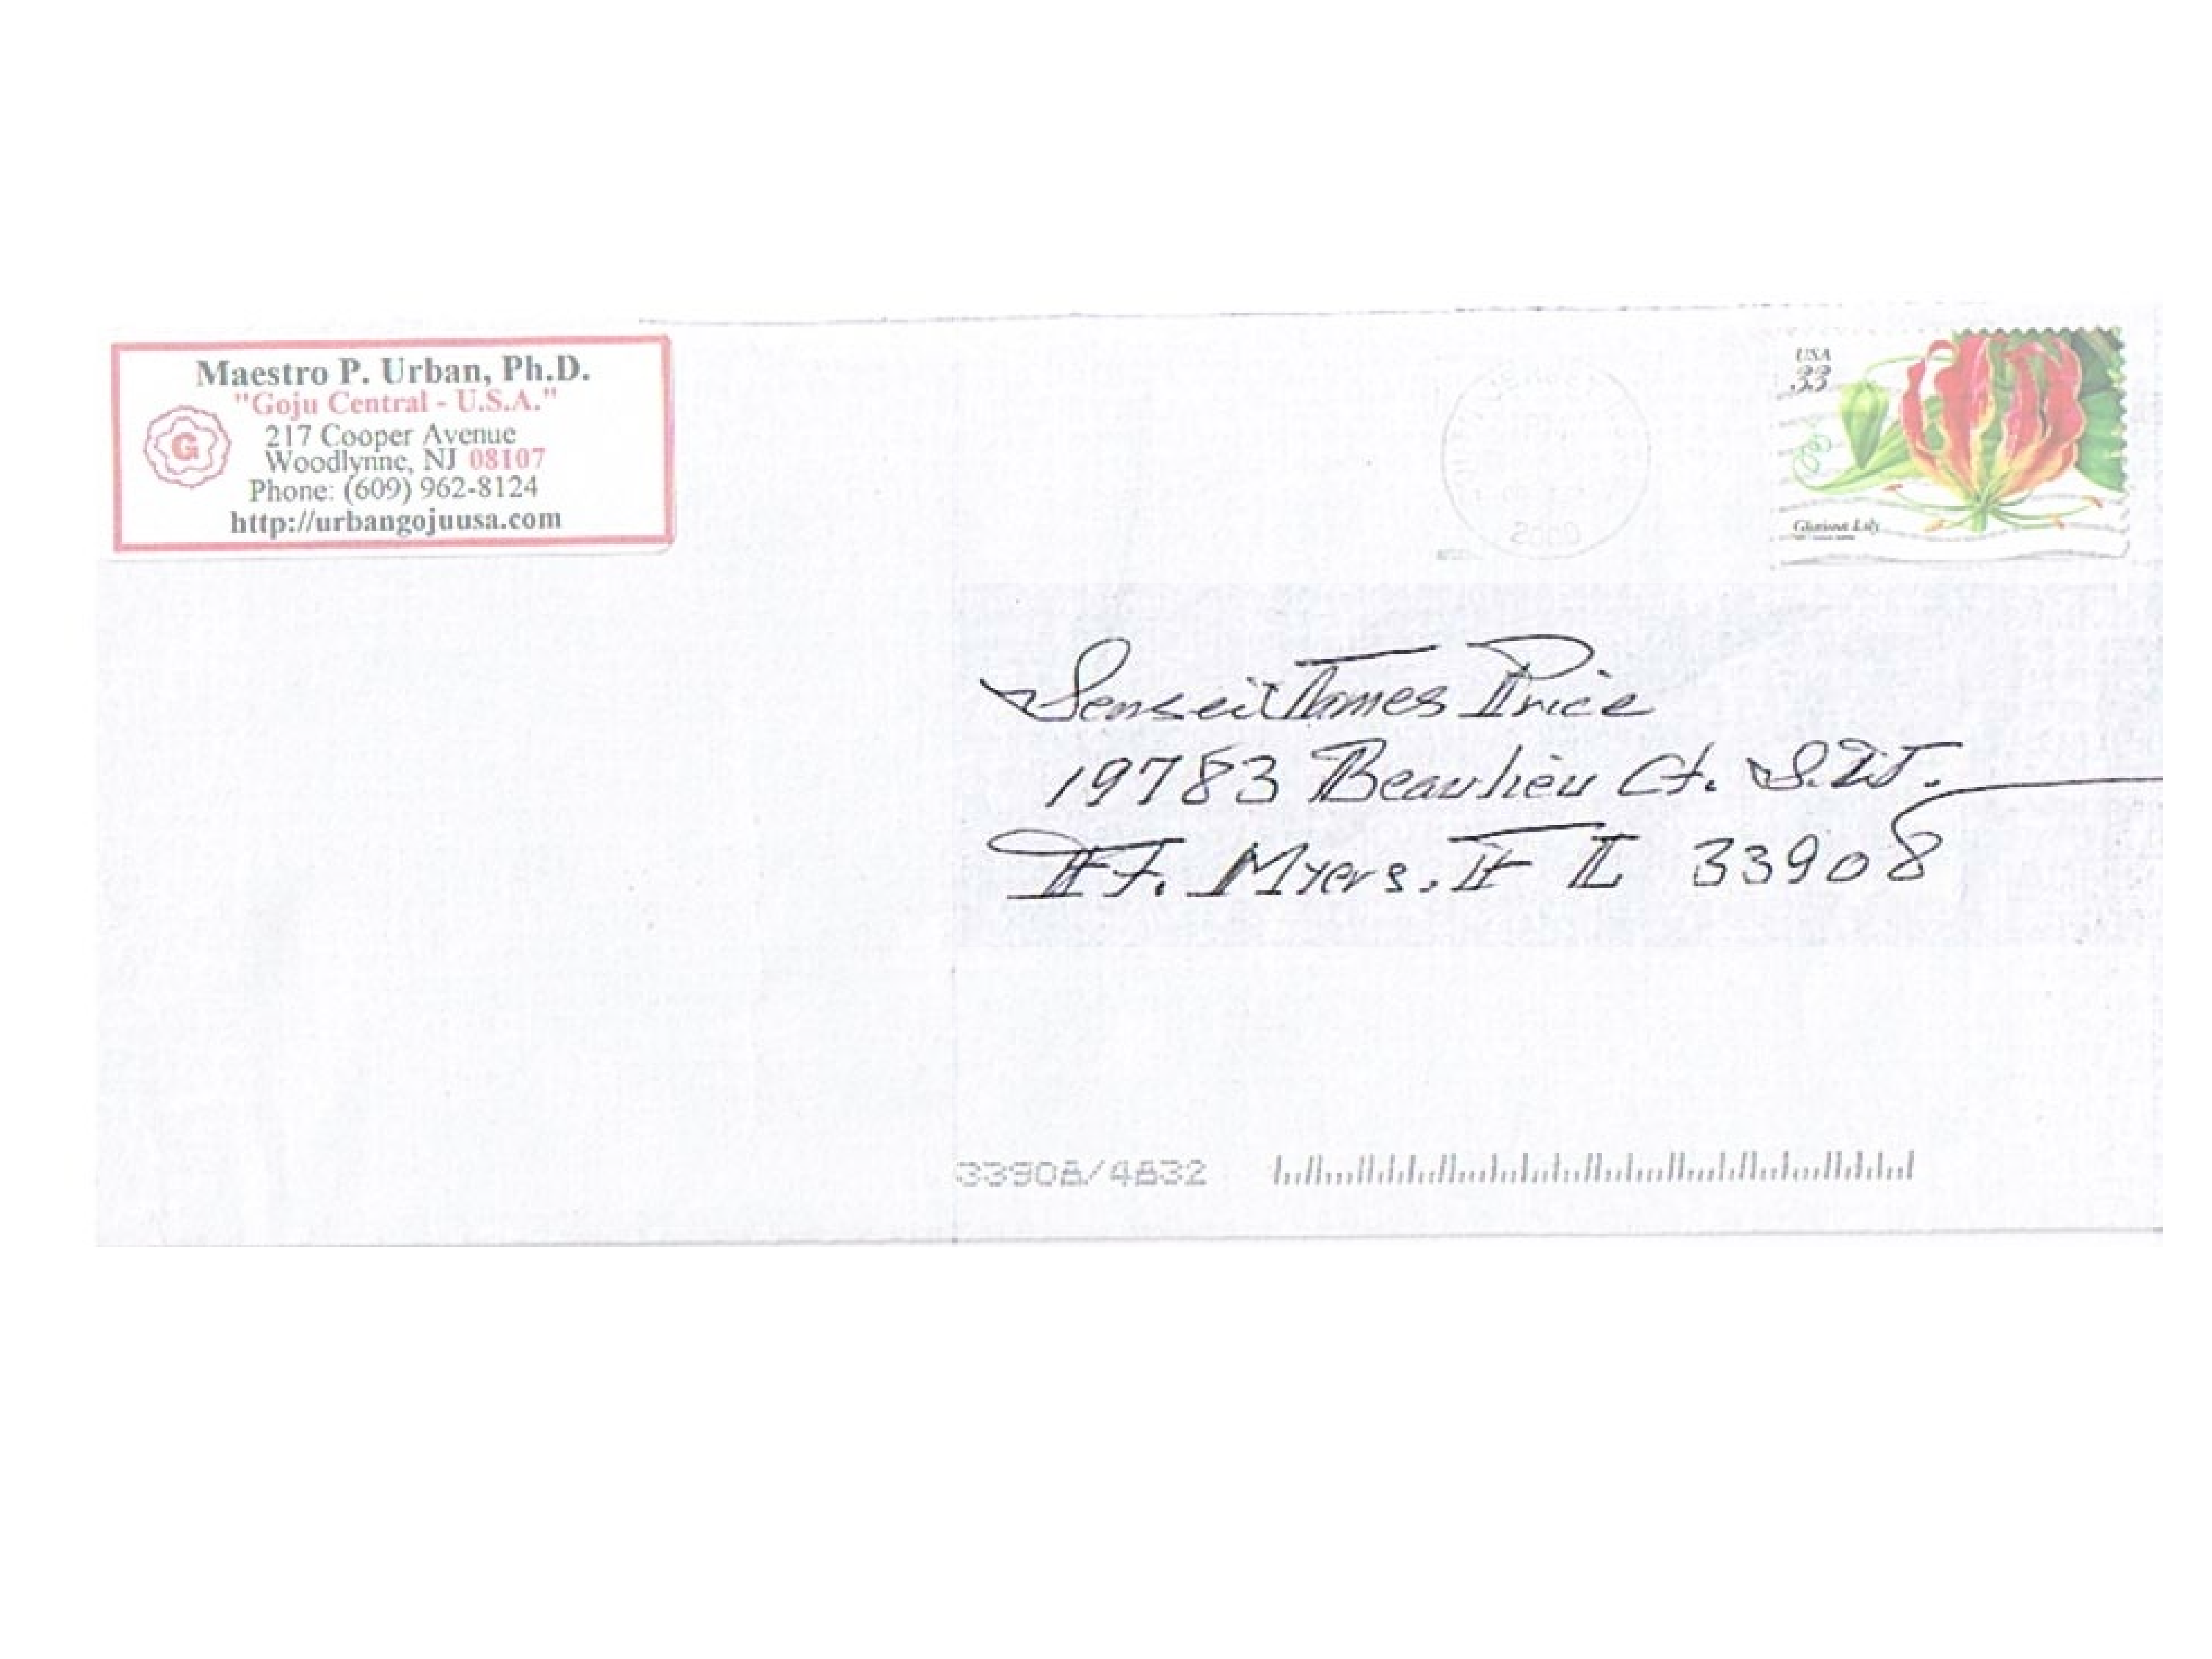 Maestro P. Urban, Ph.D.
"Goju Central - U.S.A."
G
217 Cooper Avenue
Woodlynne, NJ 08107
Phone: (609) 962-8124
http://urbangojuusa.com
2000
USA
33
Gloriosa Lily
Sensei James Price
19783 Beaulieu Ct. S.W.
Ft. Myers, FL 33908
33908/4832